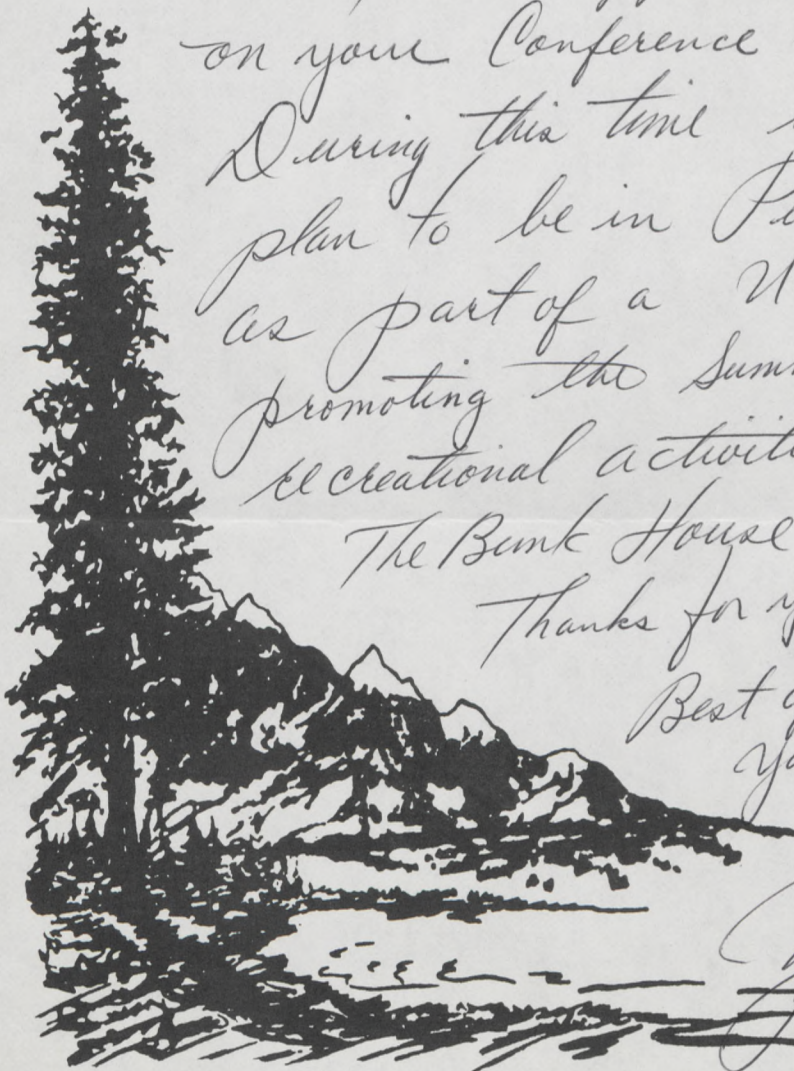 on your Conference
During this time
plan to be in
as part of a
promoting the
recreational
The Bunk House
Thanks for
Best